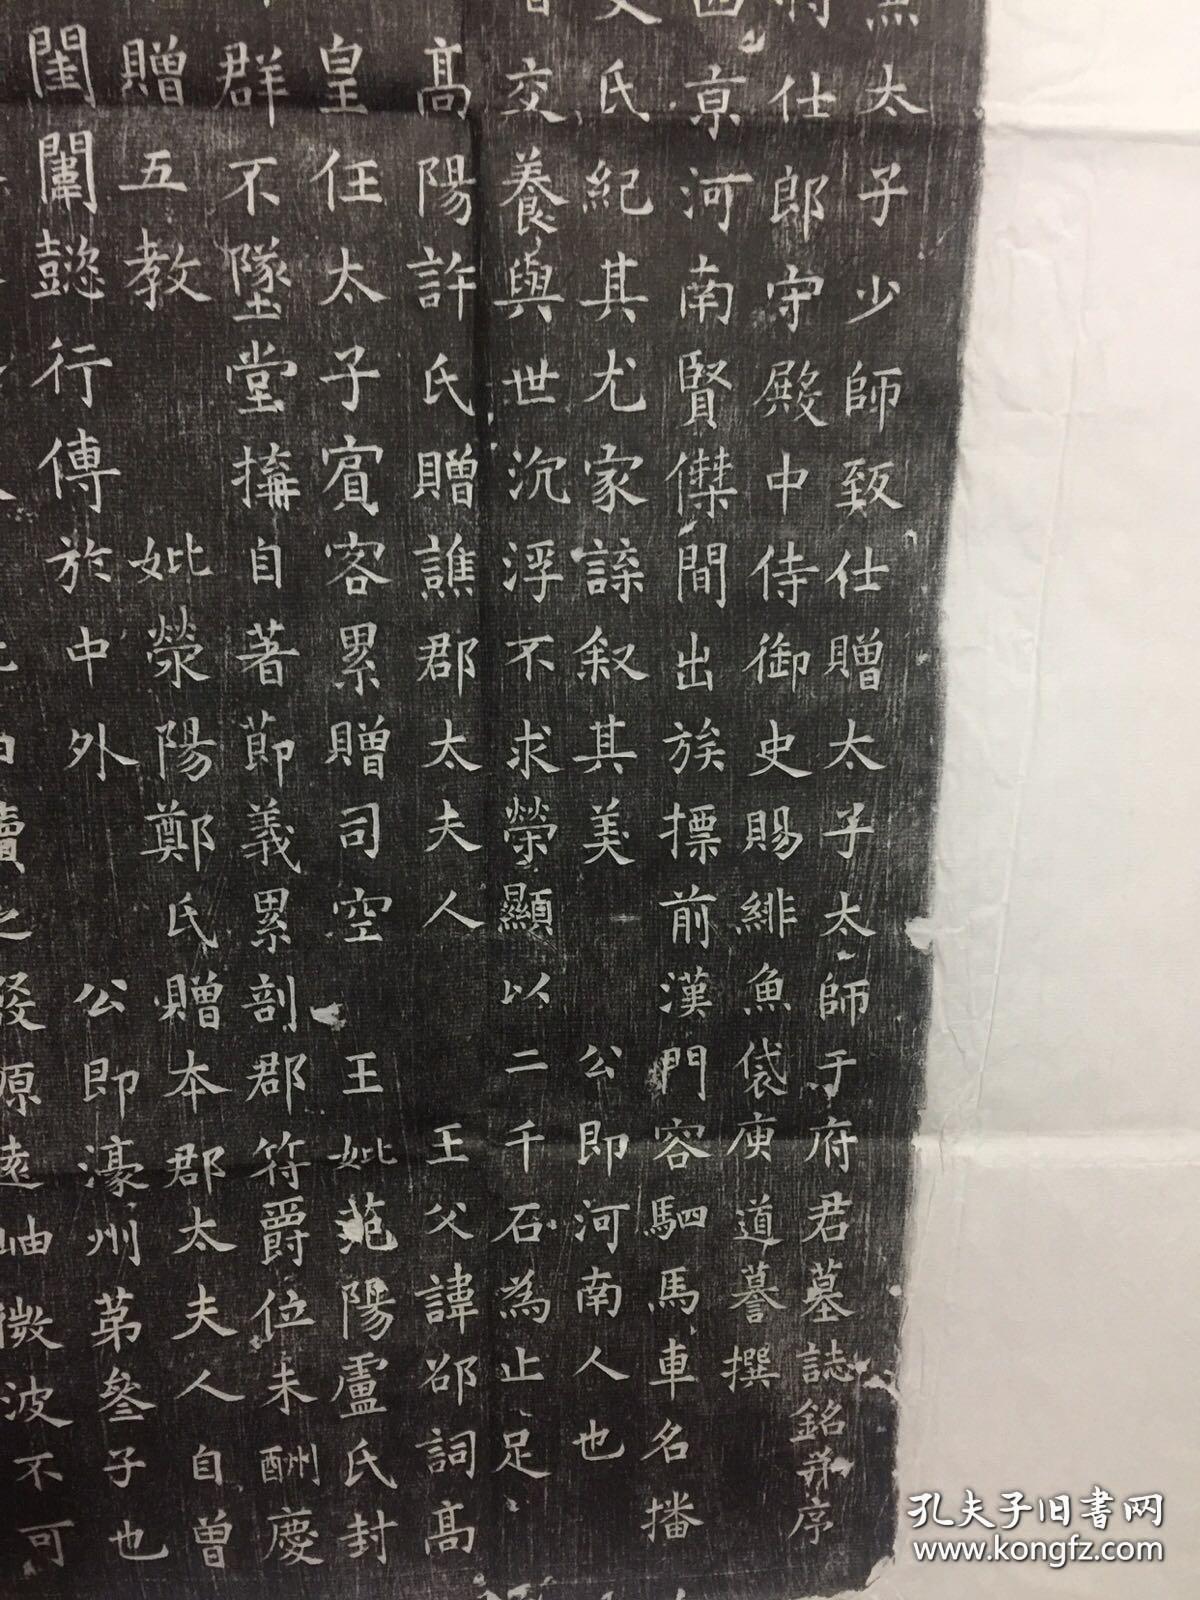 太子少師致仕贈太子太師于府君墓誌銘并序
仕郎守殿中侍御史賜緋魚袋庾道蔚撰
西京河南賢傑間出族摽前漢門容駟馬車名播
氏紀其尤家諜叙其美 公即河南人也
交養與世沉浮不求榮顯以二千石為止足
高陽許氏贈譙郡太夫人 王父諱郃詞高
皇任太子賓客累贈司空 王妣范陽盧氏封
群不墜堂搆自著節義累剖郡符爵位未酬慶
贈五教 妣滎陽鄭氏贈本郡太夫人自曾
閨闈懿行傳於中外 公即濠州第叄子也
之發源遠岫微波不可
孔夫子旧书网
www.kongfz.com